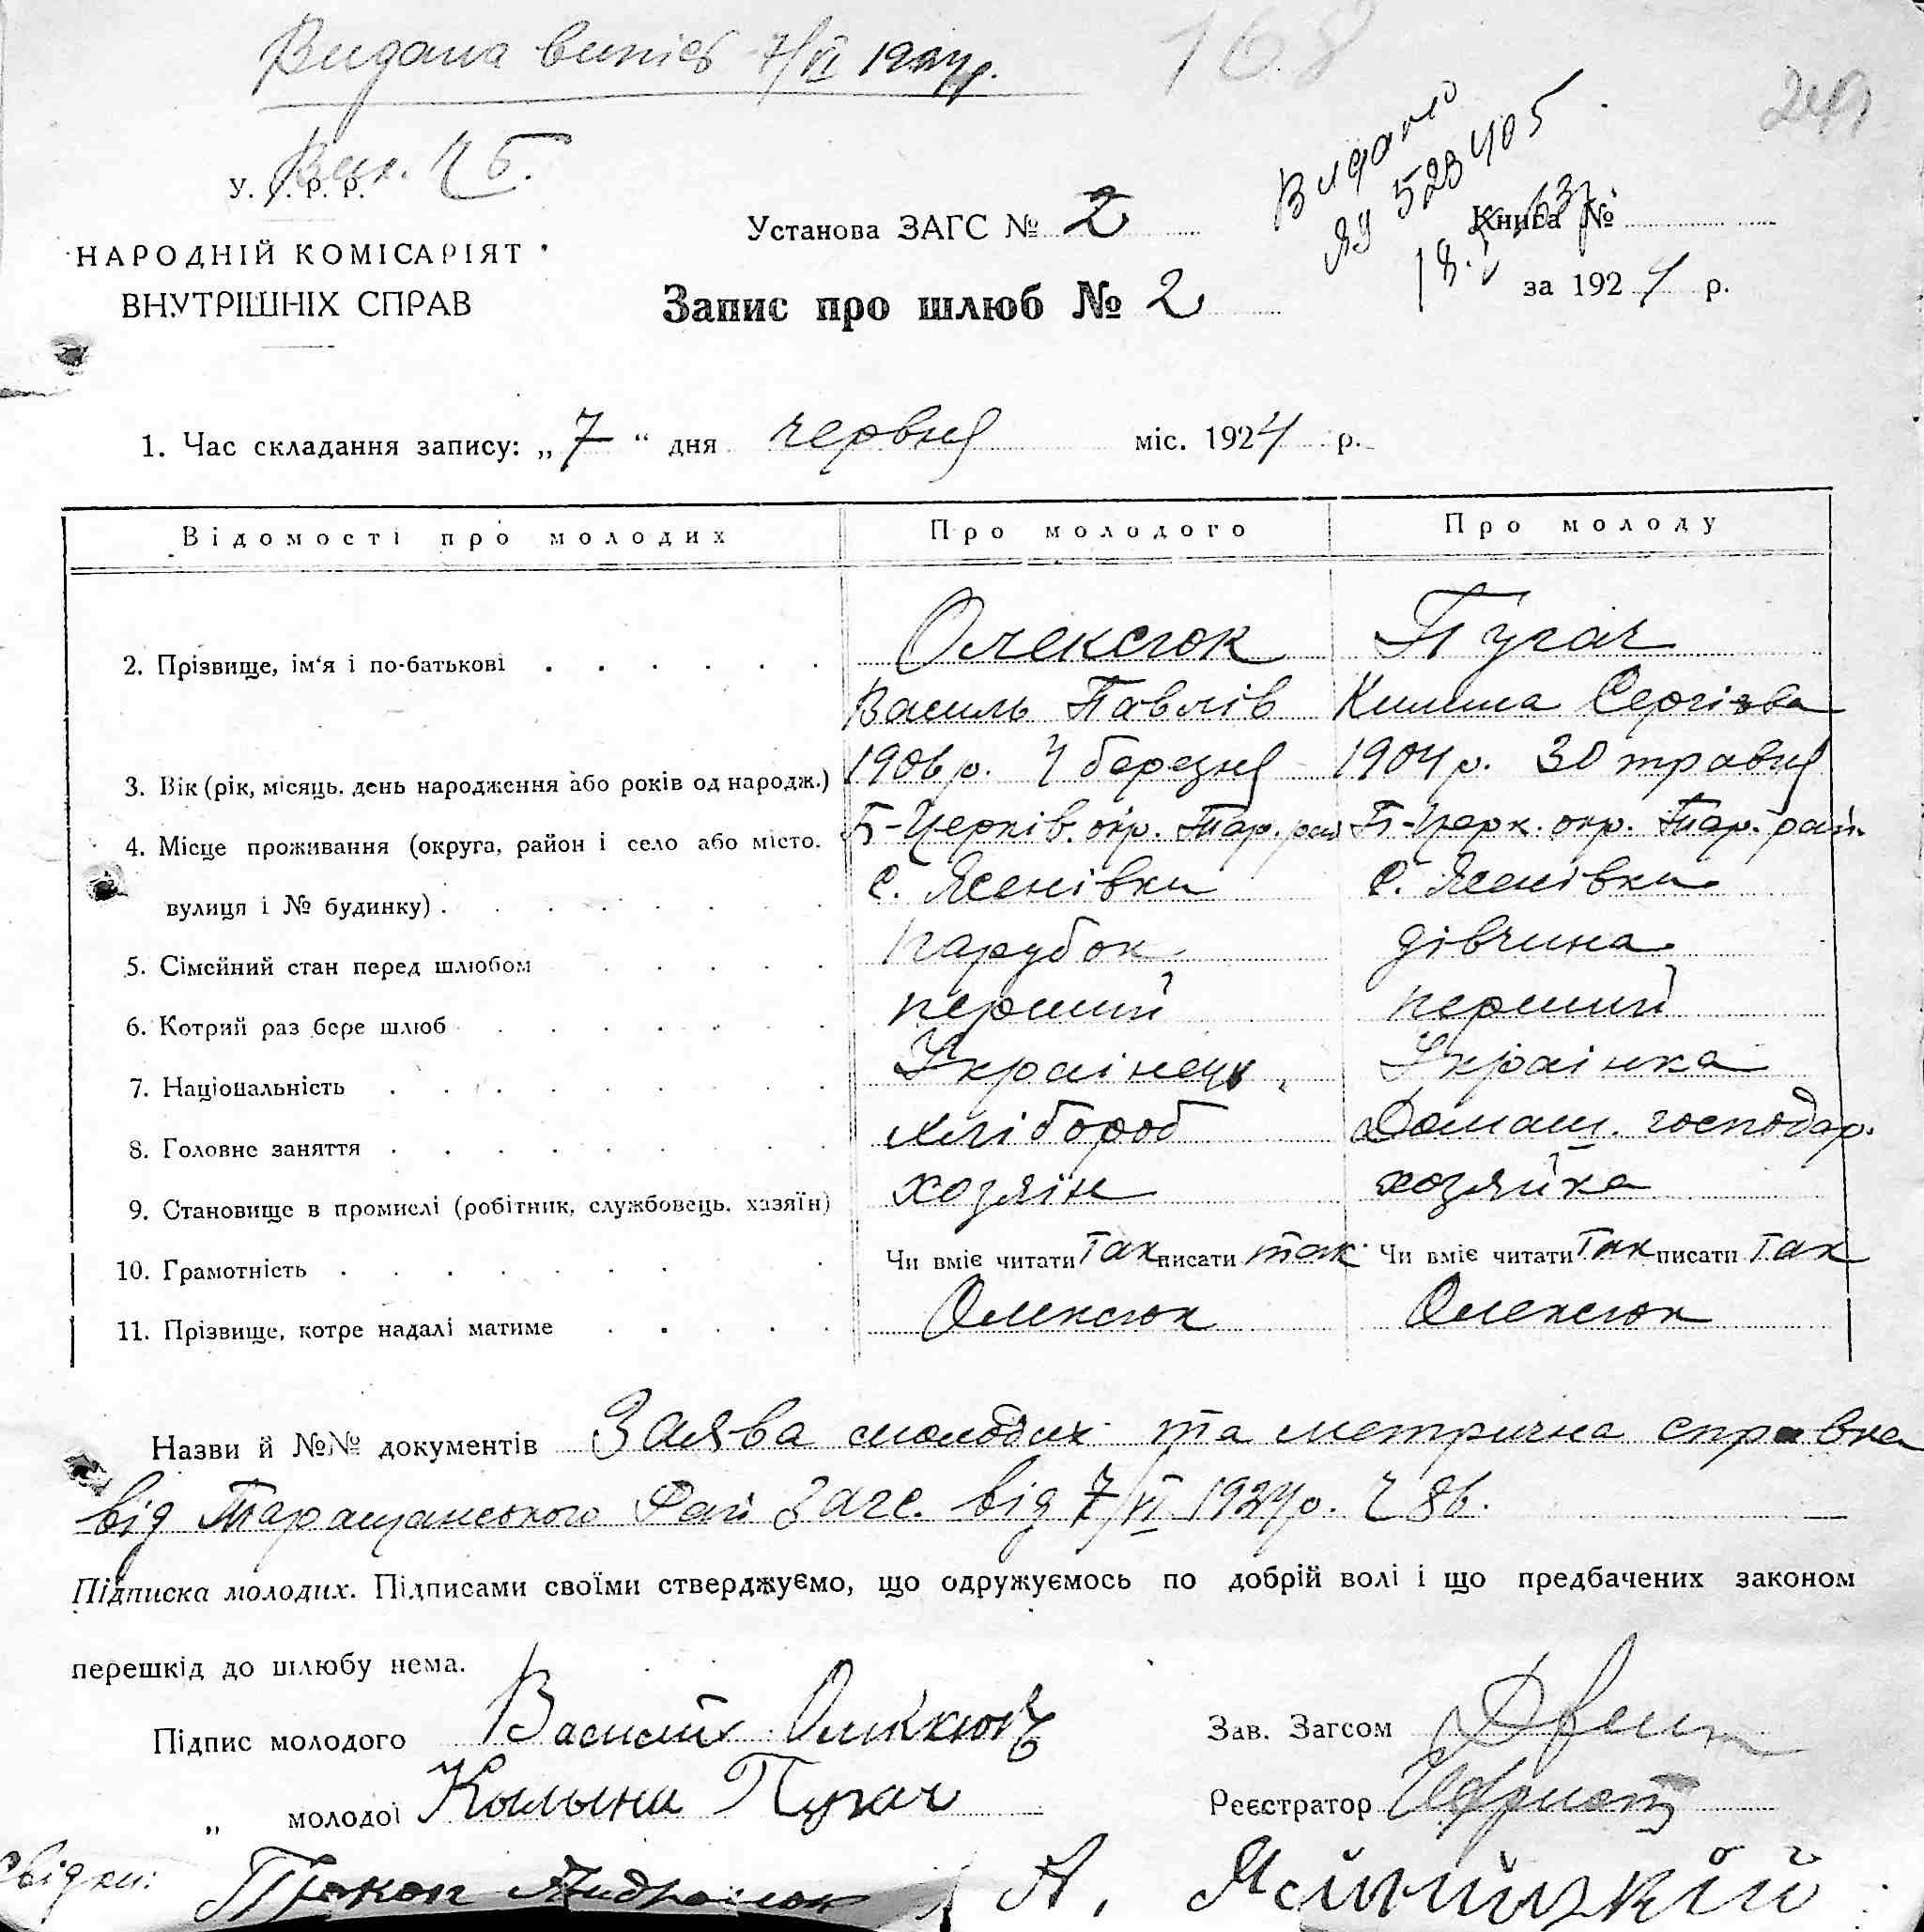 Видана випись 7/VI 1924р.
168
Вих. Ч 5.
У. С. Р. Р.
Видано
ЯУ 523405
НАРОДНІЙ КОМІСАРІЯТ
ВНУТРІШНІХ СПРАВ
Установа ЗАГС № 2
Книга №
Запис про шлюб № 2
за 1924 р.
1. Час складання запису: „7“ дня червня міс. 1924 р.
Відомості про молодих Про молодого Про молоду
2. Прізвище, ім'я і по-батькові Олексюк Пугач
Василь Павлів Килина Сергієва
3. Вік (рік, місяць, день народження або років од народж.) 1906 р. 4 березня 1904 р. 30 травня
4. Місце проживання (округа, район і село або місто, Б-Церків. окр. Тар. рай Б-Церк. окр. Тар. рай.
вулиця і № будинку) с. Ясенівки с. Ясенівки
5. Сімейний стан перед шлюбом парубок дівчина
6. Котрий раз бере шлюб перший перший
7. Національність Українець Українка
8. Головне заняття хлібороб Домаш. господар.
9. Становище в промислі (робітник, службовець, хазяїн) хозяін хозяйка
10. Грамотність Чи вміє читати так писати так Чи вміє читати так писати так
11. Прізвище, котре надалі матиме Олексюк Олексюк
Назви й №№ документів Заява молодих та метрична справка
від Таращанського Рай Загс. від 7/VI 1924р. Ч 86.
Підписка молодих. Підписами своїми стверджуємо, що одружуємось по добрій волі і що предбачених законом
перешкід до шлюбу нема.
Підпис молодого Зав. Загсом
„ молодої Кылына Пугач Реєстратор
Свідки: Прокоп А.